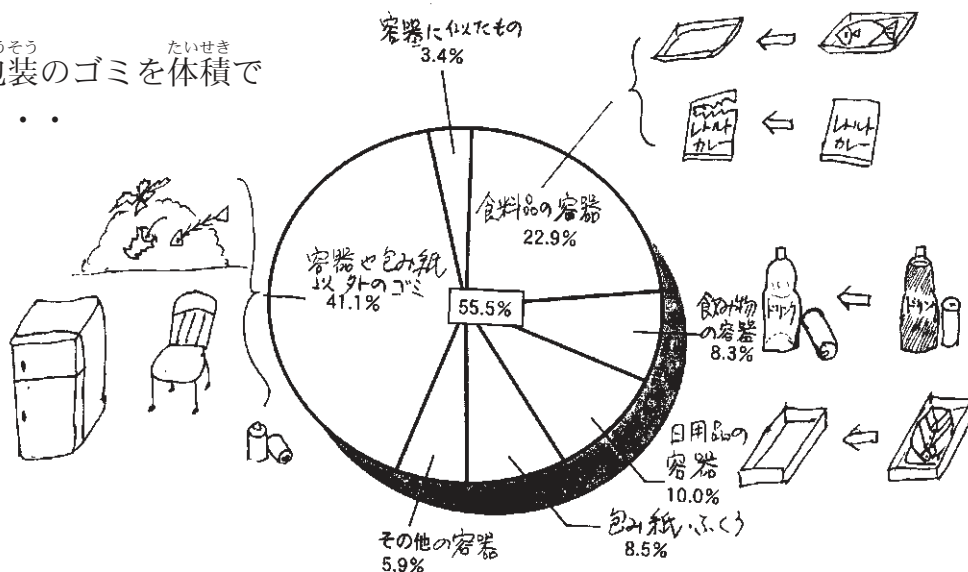 うそう
装のゴミを体積で
たいせき
・・
容器に似たもの
3.4%
食料品の容器
22.9%
容器や包み紙
以外のゴミ
41.1%
55.5%
飲み物
の容器
8.3%
日用品の
容器
10.0%
包み紙・ふくろ
8.5%
その他の容器
5.9%
レトルト
カレー
レトルト
カレー
ドリンク
ドリンク